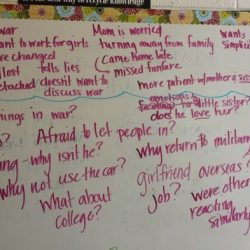 war Mom is worried wants
want to work for girls turning away from family simplici
re changed Came home late
lost tells lies missed fanfare
etached doesn't want to more patient w/mother & sis
discuss war
emotions &
hings in war? for little sister
does he love her?
Afraid to let people in?
ng - why isn't he? Why return to militar
why not use the car? girlfriend overseas?
What about job? were other
college? reacting
similarly?